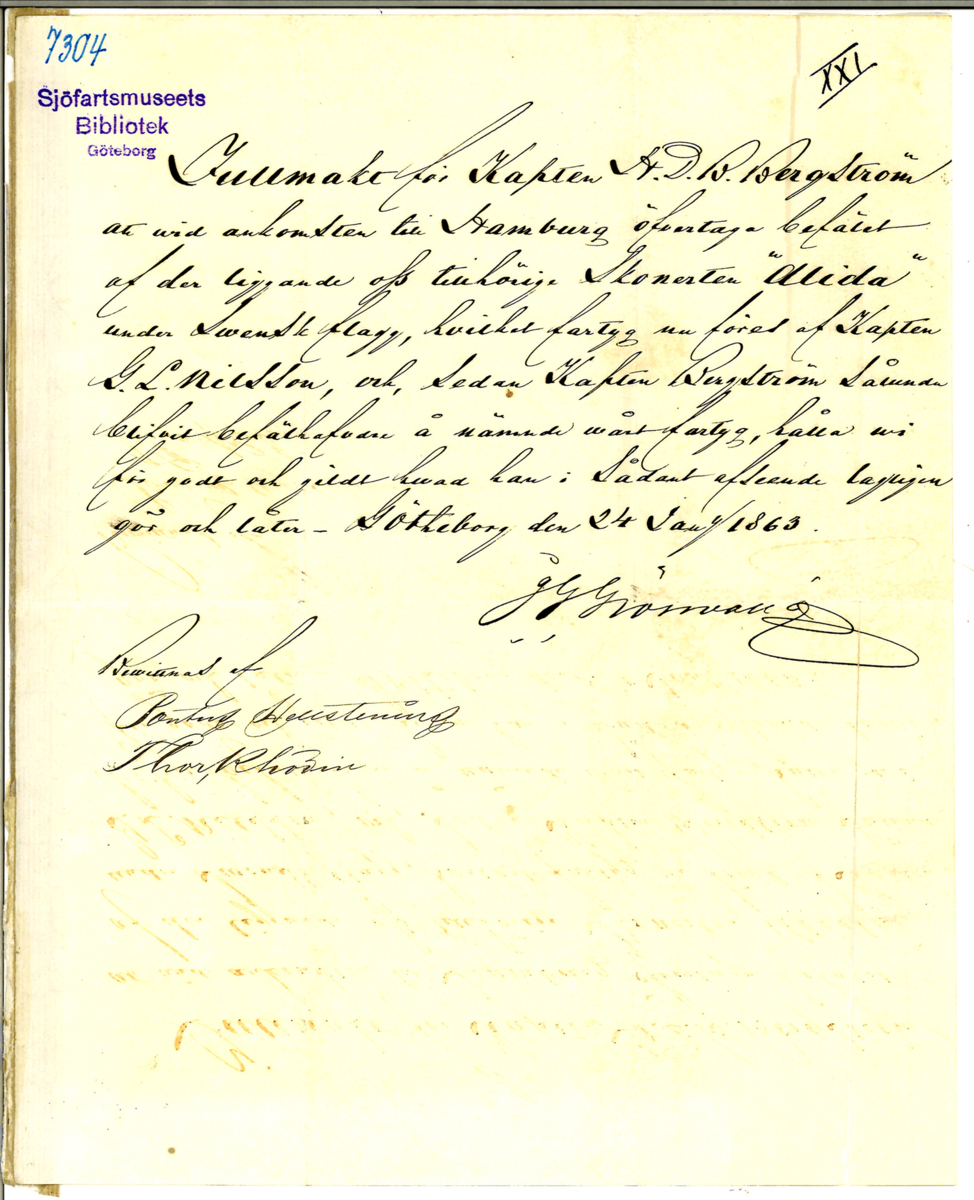 7304
XXI
Sjöfartsmuseets
Bibliotek
Göteborg
Fullmakt för Kapten H. D. B. Bergström
att wid ankomsten till Hamburg öfvertaga befälet
af der liggande oss tillhörige Skonerten "Alida"
under Swensk flagg, hvilket fartyg nu föres af Kapten
G. L. Nilsson, och, sedan Kapten Bergström sålunda
blifvit befälhafvare å nämnde wårt fartyg, hålla wi
för godt och gildt hwad han i sådant afseende lagligen
gör och låter - Götheborg den 24 Jany/1863.
Bewittnas af
Pontus Hellstening
Thor, Rhodin